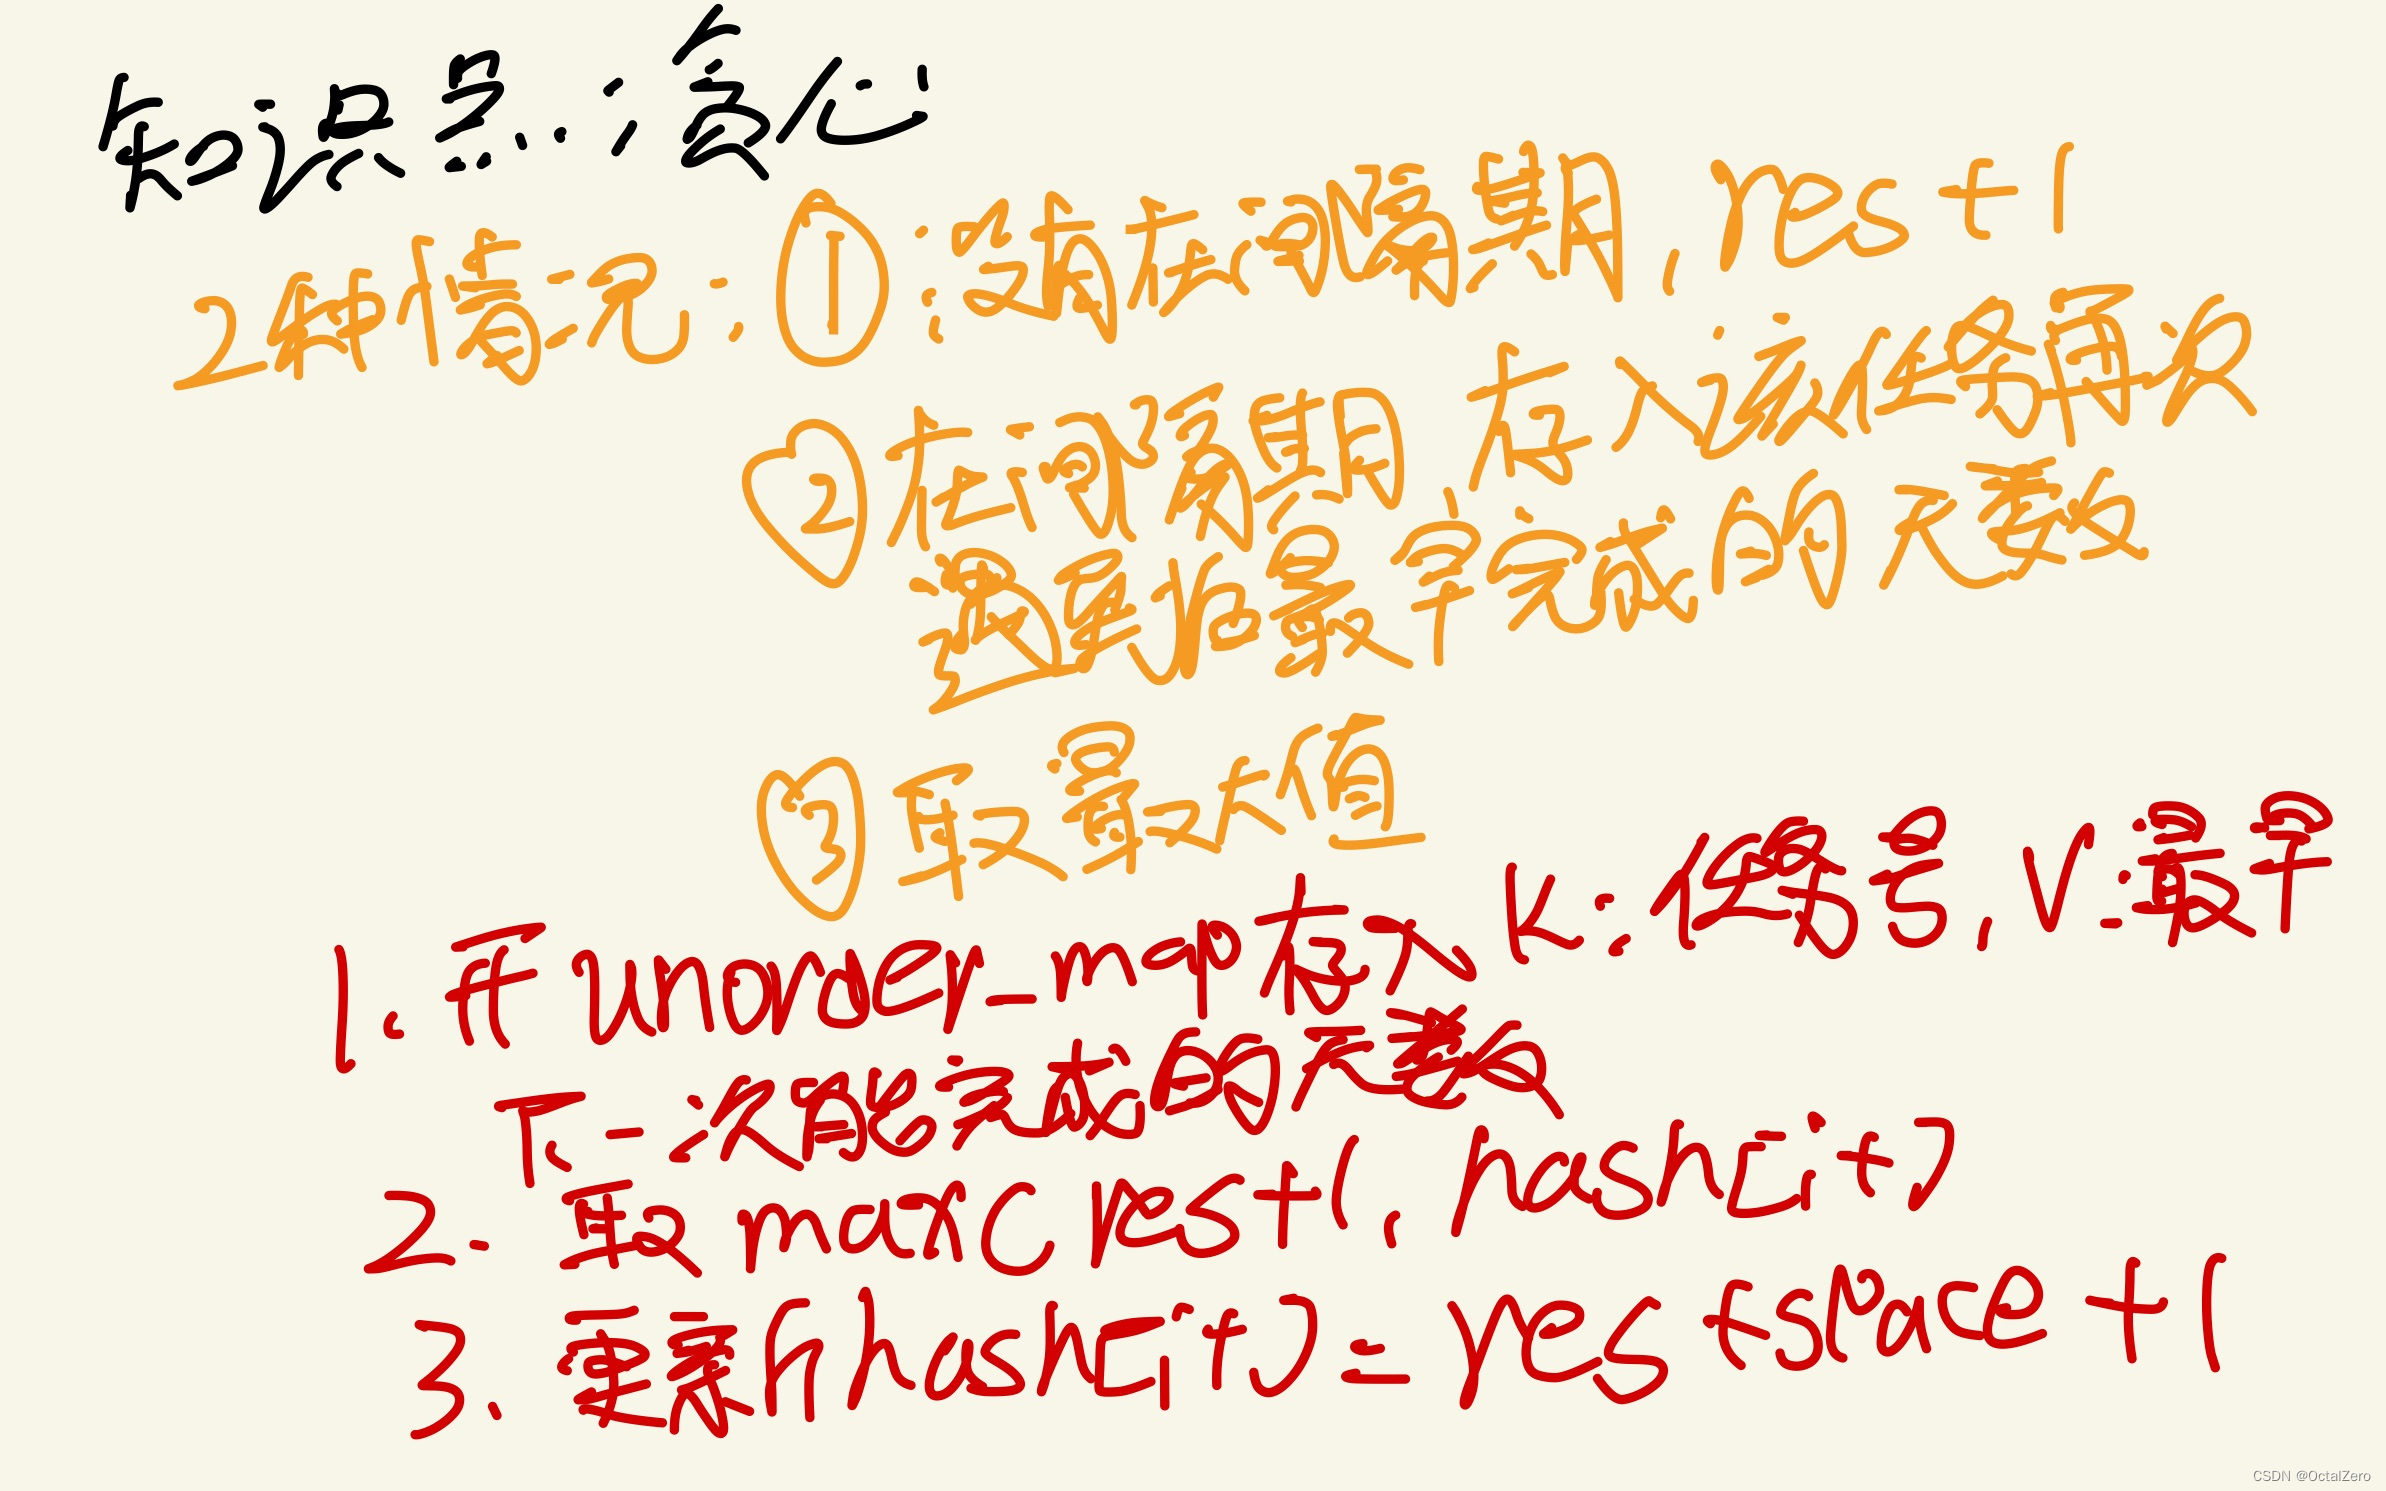 知识点:贪心
2种情况:①:没有在间隔期,res+1
②在间隔期 存入该任务再次
遇到后最早完成的天数
③取最大值
1.开unorder_map存入K:任务号,V:最早
下一次能完成的天数
2.取max(res+1,hash[it])
3.更新hash[it]=res+space+1
CSDN @OctalZero